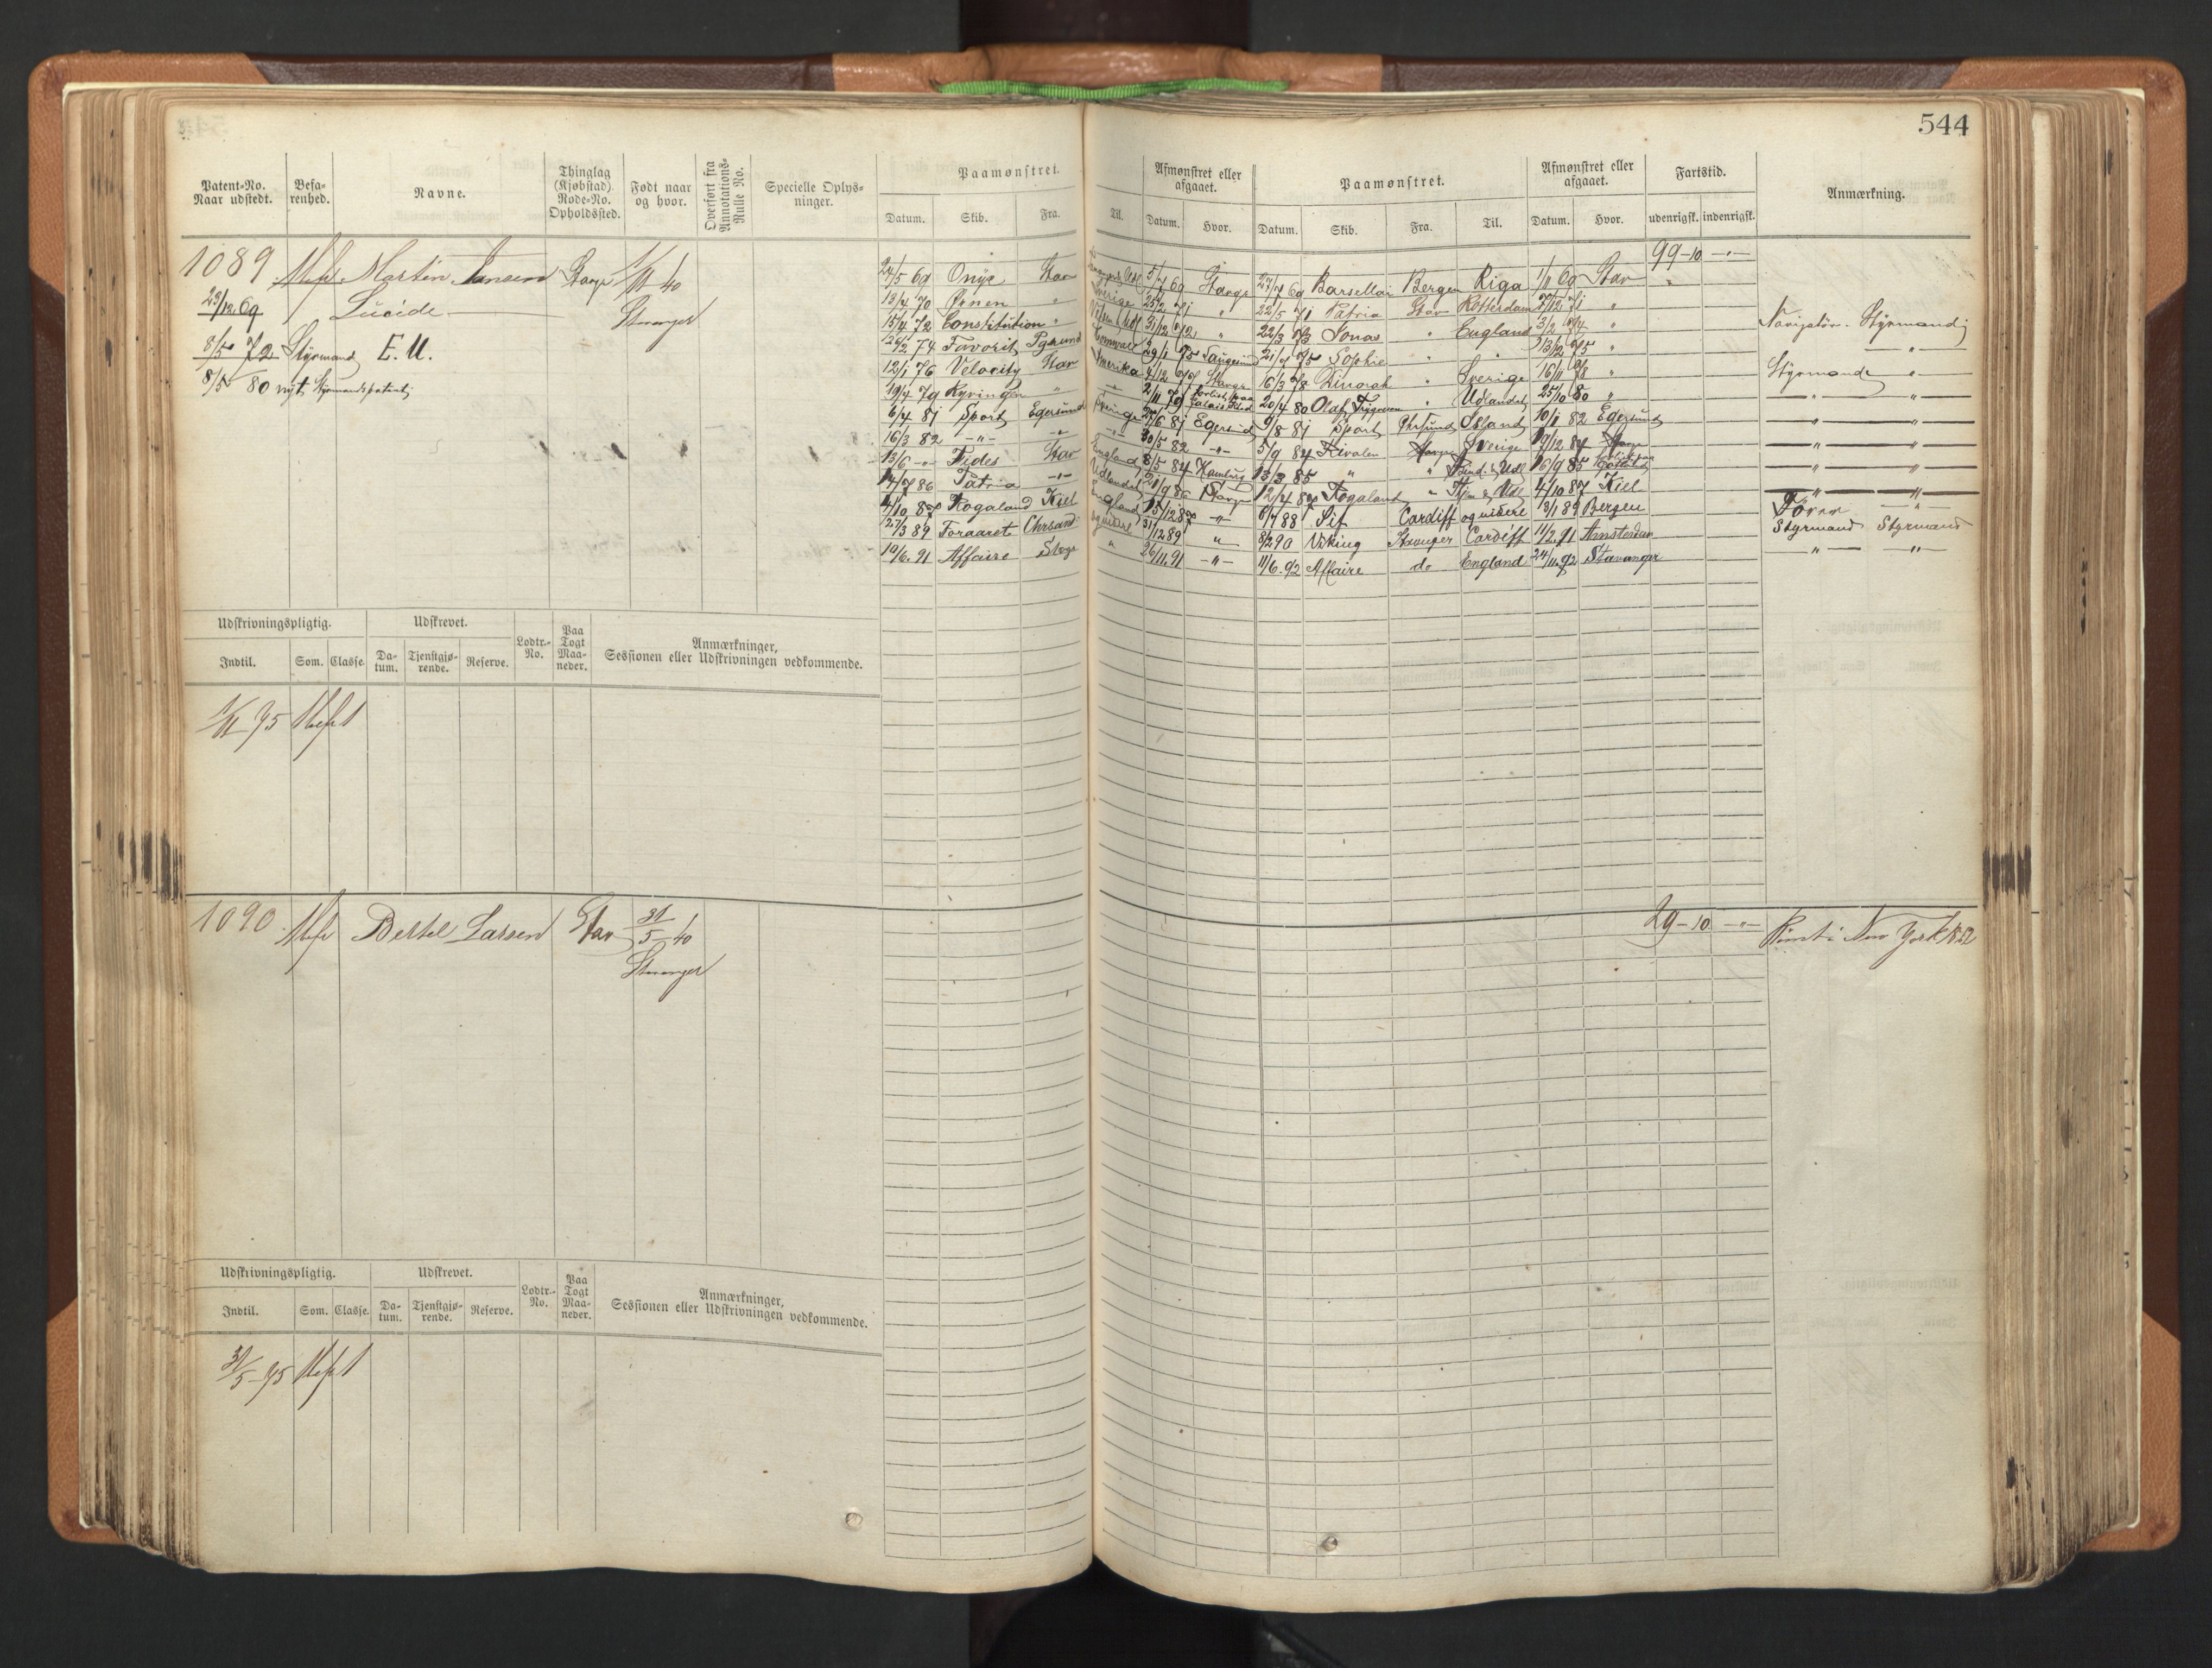 544
Patent-No. Naar udstedt. Befarenhed. Navne. Thinglag (Kjøbstad). Rode-No. Opholdssted. Født naar og hvor. Overført fra Annotations-Rulle No. Specielle Oplysninger. Paamønstret. Afmønstret eller afgaaet. Paamønstret. Afmønstret eller afgaaet. Fartstid. Anmærkning.
Datum. Skib. Fra. Til. Datum. Hvor. Datum. Skib. Fra. Til. Datum. Hvor. udenrigsk. indenrigsk.
1089 Martin Jansen 40 99-10
23/12 69 Lucide Stavanger
8/5 72 Styrmand E. U.
8/5 80 nyt Styrmandspatent
24/5 69 Stav 5/7 69 Stavgr 27/7 69 Bergen Riga 1/11 69 Stav
13/4 70 " Sverige 25/2 71 " 22/5 71 Patria Stav Rotterdam 7/12 71 "
15/4 72 Constitution " 31/12 72 " 22/3 73 Jonas " England 3/2 74 " Navigatør. Styrmand
26/2 74 Favorit 29/1 75 21/7 75 Sophie " " 13/12 75 " "
12/1 76 Velocity Stav Amerika 4/12 77 Stavgr 16/3 78 " Sverige 16/11 78 " Styrmand "
19/4 79 Kyringen " 2/11 79 20/4 80 Olaf Trygvason " Udlandet 25/10 80 " " "
6/4 81 Sport Egersund 27/6 81 Egersund 9/8 81 Sport Island 10/1 82 Egersund " "
16/3 82 -"- 30/5 82 -"- 5/9 84 Rivalen Sverige 17/12 84 " "
13/6 -"- Fides Stav England 8/5 84 Hamburg 13/3 85 " " 16/9 85 " "
14/7 86 Patria Udlandet 21/9 86 Stavgr 12/4 87 Rogaland " 4/10 87 Kiel " "
4/10 87 Rogaland Kiel England 15/12 87 -"- 6/7 88 Sif Cardiff og videre 13/1 89 Bergen Fører "
27/3 89 Foraaret Chrsand og videre 31/12 89 " 8/2 90 Viking Stavanger Cardiff 11/2 91 Amsterdam Styrmand Styrmand
10/6. 91 Affaire Stvgr " 26/11. 91 -"- 11/6. 92 Affaire do England 24/11. 92 Stavanger -"- -"-
Udskrivningspligtig. Udskrevet. Lodtr.-No. Paa Togt Maaneder. Anmærkninger, Sessionen eller Udskrivningen vedkommende.
Indtil. Som. Classe. Datum. Tjenstgjørende. Reserve.
1/11 75
1090 Bertel Larsen Stav 31/5-40 29-10 -"- New York 1852
Stavanger
Udskrivningspligtig. Udskrevet. Lodtr.-No. Paa Togt Maaneder. Anmærkninger, Sessionen eller Udskrivningen vedkommende.
Indtil. Som. Classe. Datum. Tjenstgjørende. Reserve.
31/5-75